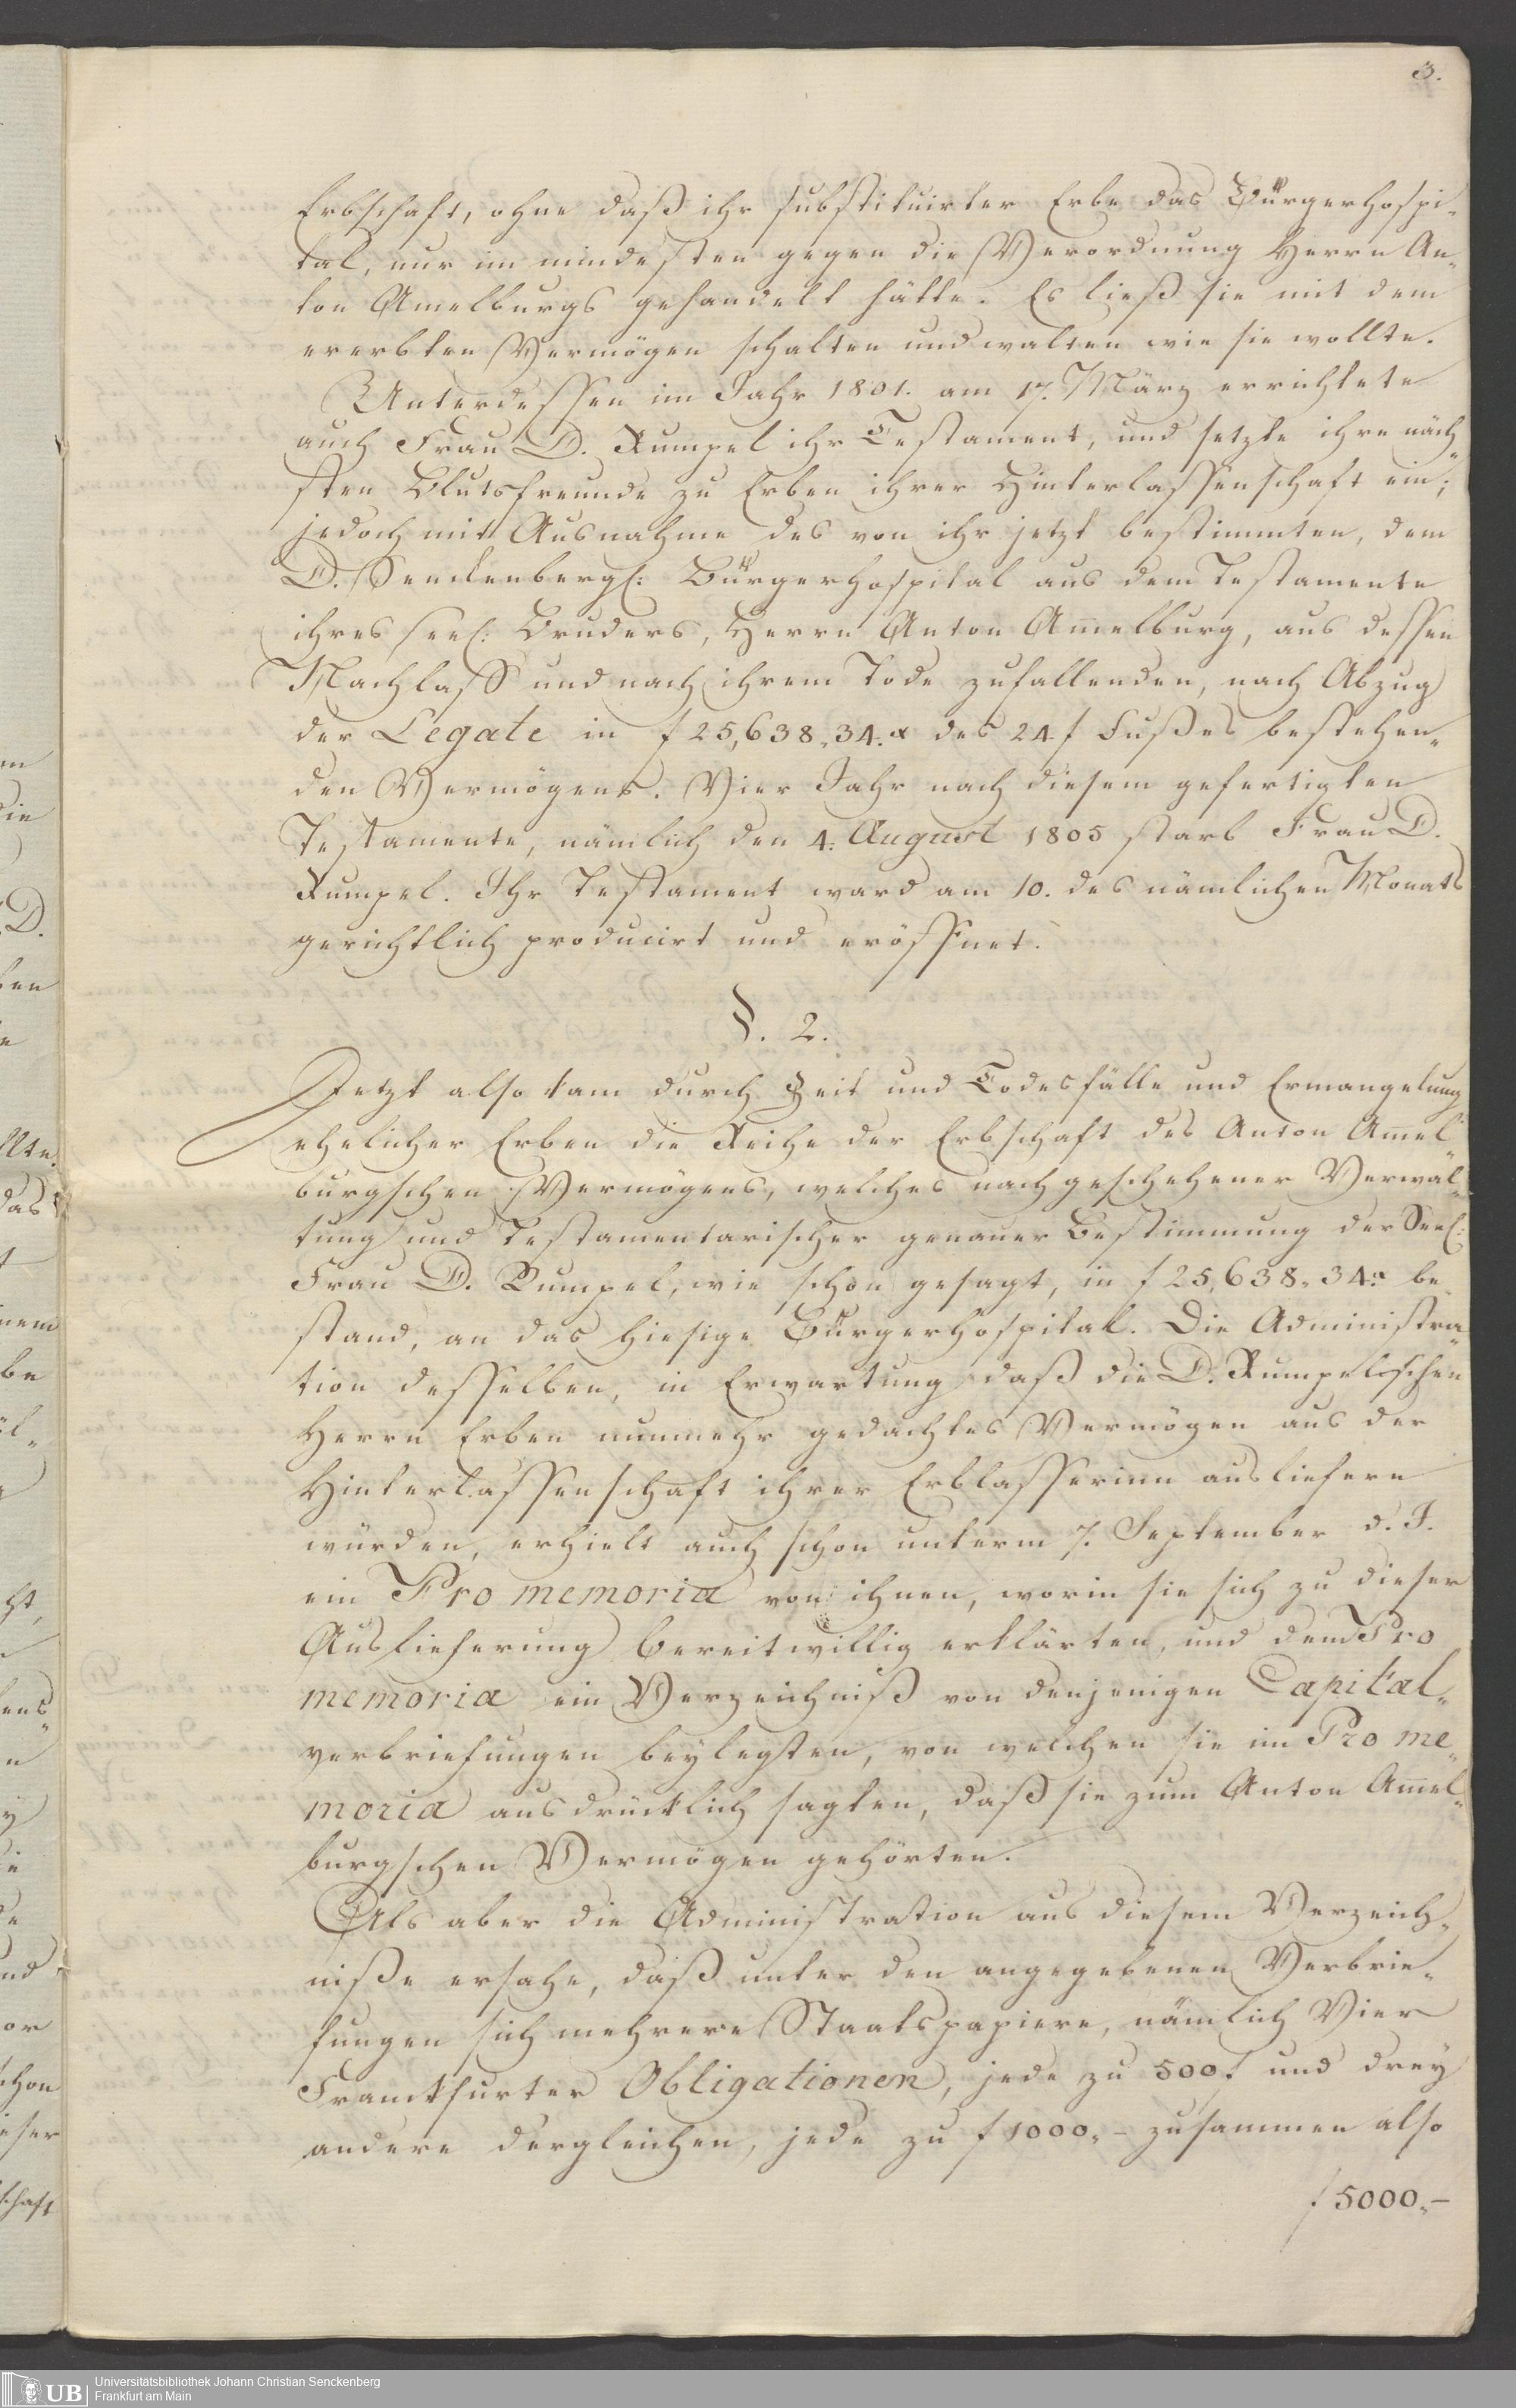 3.
Erbschaft, ohne daß ihr substituirter Erbe das Bürgerhospi„
tal, nur im mindesten gegen die Verordnung Herrn An„
ton Amelburgs gehandelt hätte. Es ließ sie mit dem
ererbten Vermögen schalten und walten wie sie wollte.
Unterdessen im Jahr 1801. am 17. März errichtete
auch Frau D. Rumpel ihr Testament, und setzte ihre näch„
sten Blutsfreunde zu Erben ihrer Hinterlassenschaft ein;
jedoch mit Ausnahme des von ihr jetzt bestimmten, dem
D. Senckenbergl: Bürgerhospital aus dem Testamente
ihres seel: Bruders, Herrn Anton Am̅elburg, aus dessen
Nachlass und nach ihrem Tode zufallenden, nach Abzug
der Legate in f 25,638„34.x des 24 f Fußes bestehen„
den Vermögens. Vier Jahr nach diesem gefertigten
Testamente, nämlich den 4. August 1805 starb Frau D.
Rumpel. Ihr Testament ward am 10. des nämlichen Monats
gerichtlich producirt und eröffnet.
§. 2.
Jetzt also kam durch Zeit und Todesfälle und Ermangelung
ehelicher Erben die Reihe der Erbschaft des Anton Am̅el„
burgschen Vermögens, welches nach geschehener Verwal„
tung und Testamentarischer genauer Bestimmung der Seel:
Frau D. Rumpel, wie schon gesagt, in f 25,638„34.x be„
stand, an das hiesige Bürgerhospital. Die Administra„
tion desselben, in Erwartung daß die D. Rumpelschen
Herrn Erben nunmehr gedachtes Vermögen aus der
Hinterlassenschaft ihrer Erblasserinn ausliefern
würden, erhielt auch schon unterm 7. September d. J.
ein Pro memoria von ihnen, worin sie sich zu dieser
Auslieferung bereitwillig erklärten, und dem Pro
memoria ein Verzeichniß von denjenigen Capital„
verbriefungen beylegten, von welchen sie im Pro me„
moria ausdrücklich sagten, daß sie zum Anton Am̅el„
burgschen Vermögen gehörten.
Als aber die Administration aus diesem Verzeich„
niße ersahe, daß unter den angegebenen Verbrie„
fungen sich mehrere Staatspapiere, nämlich Vier
Franckfurter Obligationen, jede zu 500 f und drey
andere dergleichen, jede zu f 1000„– zusammen also
f 5000„–
UB
Universitätsbibliothek Johann Christian Senckenberg
Frankfurt am Main